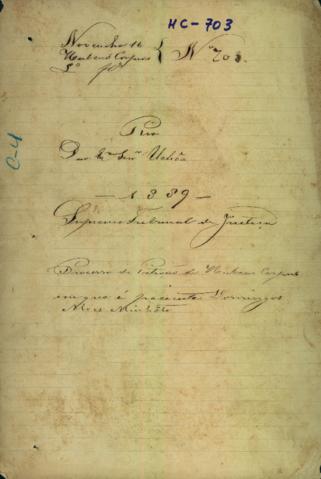 HC-703
Novembro 16
Habeas Corpus
Nº 703.
C-4
Rio
- 1889 -
Supremo Tribunal de Justiça
Processo de Petição de Habeas Corpus
em que é paciente Domingos
Alves